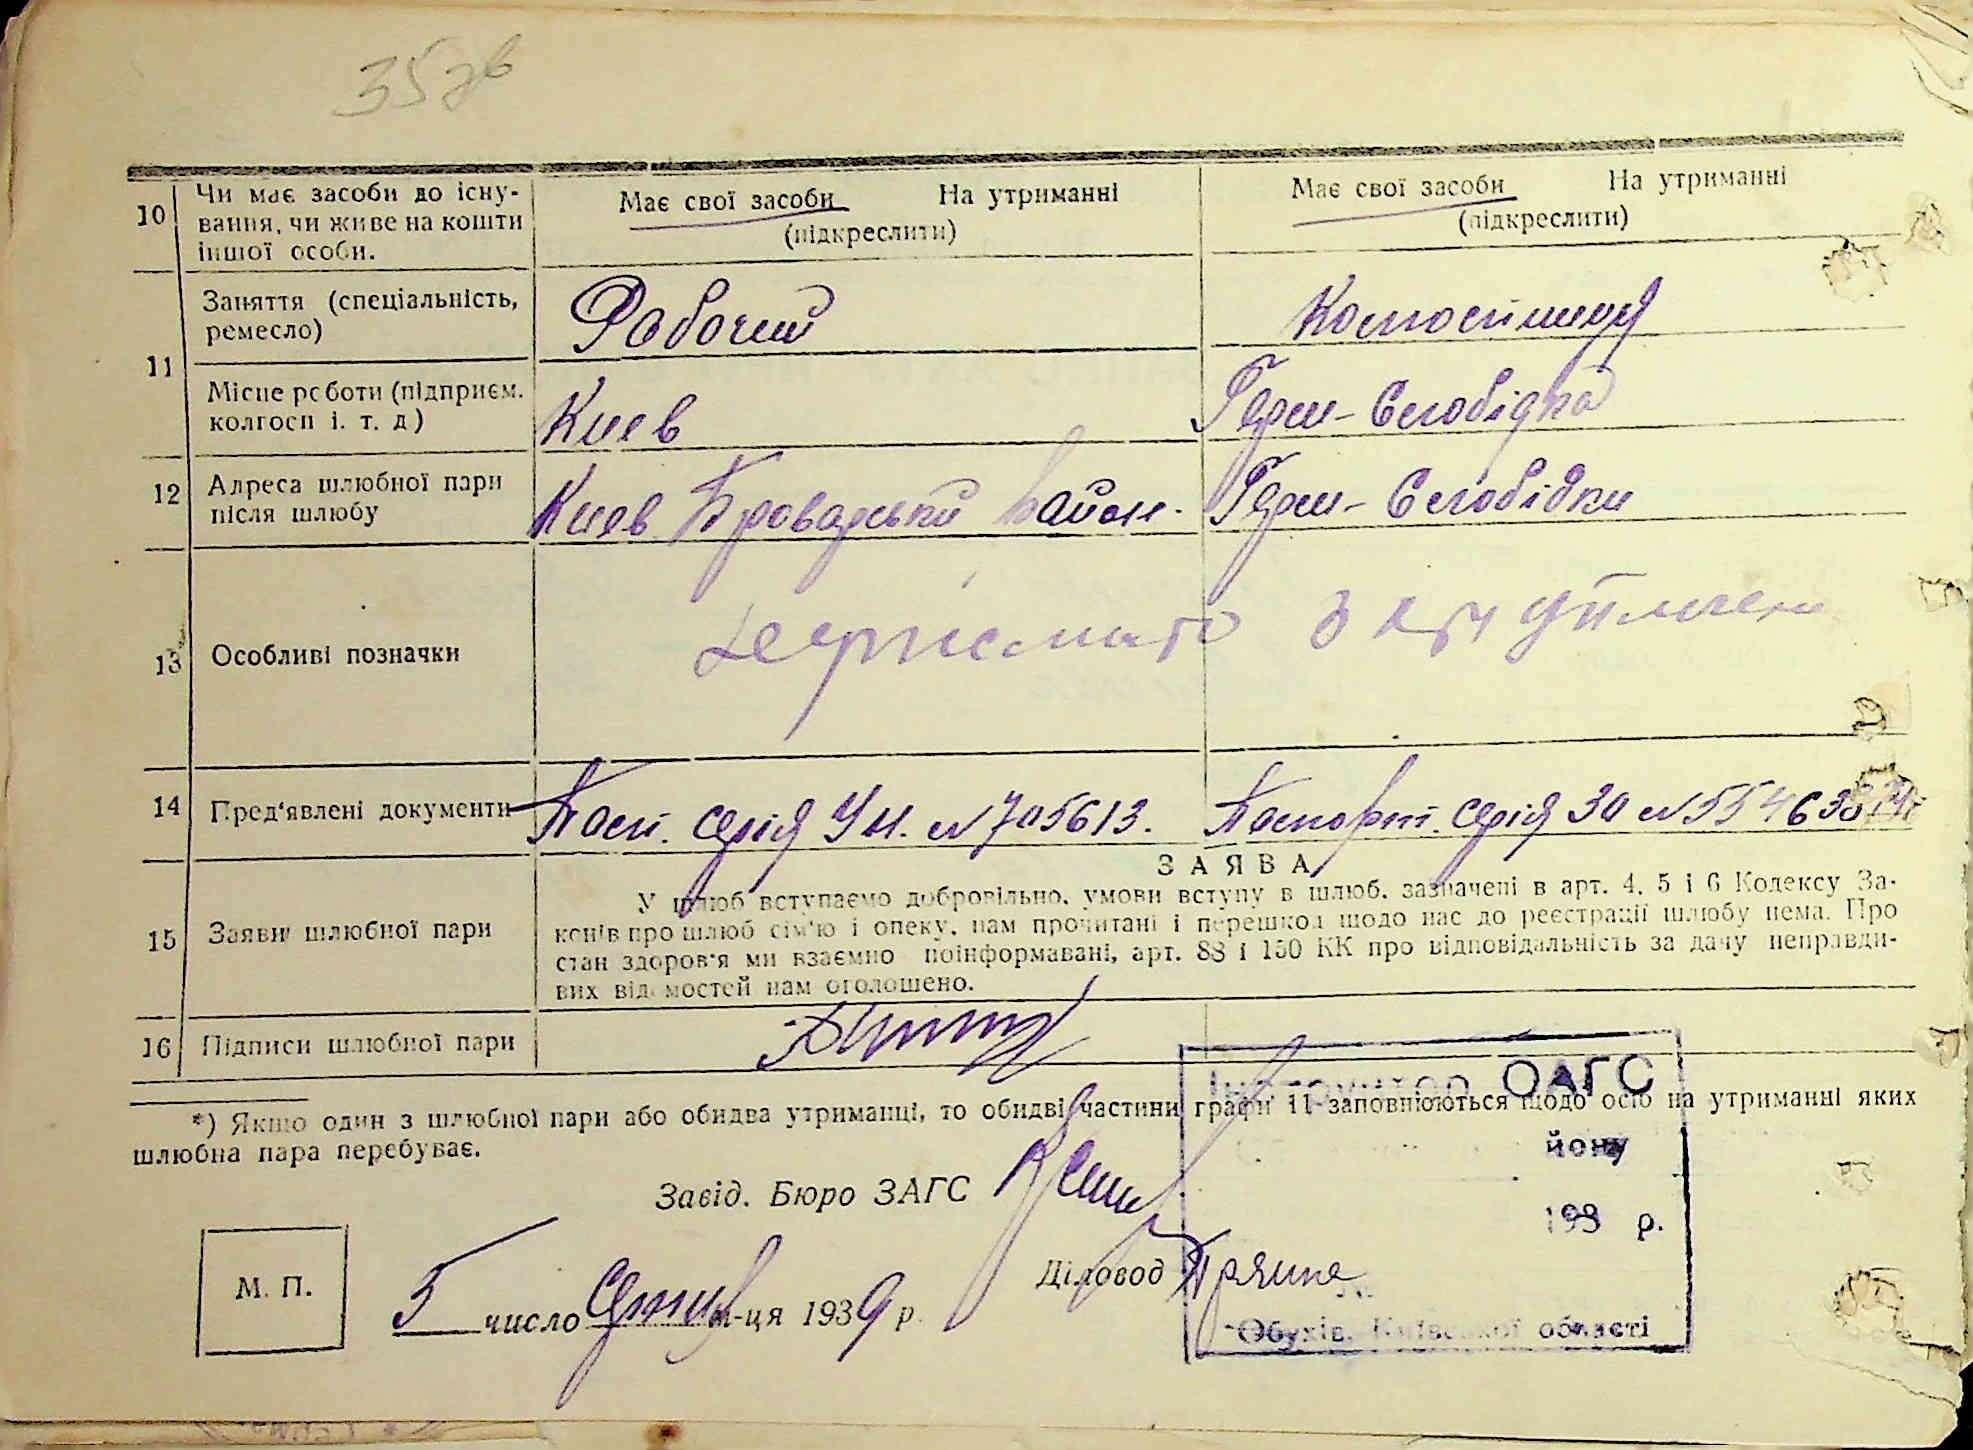 35зв
10 Чи має засоби до існу-
вання, чи живе на кошти
іншої особи.
Має свої засоби На утриманні
(підкреслити)
Має свої засоби На утриманні
(підкреслити)
11 Заняття (спеціальність,
ремесло)
Рабочий
Місце роботи (підприєм.
колгосп і. т. д)
Киев
Герм-Слобідка
12 Адреса шлюбної пари
після шлюбу
Киев Бровадський район.
Герм-Слобідки
13 Особливі позначки
14 Пред'явлені документи
Пасп. серія № 705613.
Паспорт. серія ЗО №
ЗАЯВА
15 Заяви шлюбної пари
У шлюб вступаємо добровільно, умови вступу в шлюб, зазначені в арт. 4, 5 і 6 Кодексу За-
конів про шлюб сім'ю і опеку, нам прочитані і перешкод щодо нас до реєстрації шлюбу нема. Про
стан здоров'я ми взаємно поінформавані, арт. 88 і 150 КК про відповідальність за дачу неправди-
вих відомостей нам оголошено.
16 Підписи шлюбної пари
Інструктор ОАГС
*) Якщо один з шлюбної пари або обидва утриманці, то обидві частини графи 11 заповнюються щодо осіб на утриманні яких
шлюбна пара перебуває.
йону
Завід. Бюро ЗАГС
193 р.
М. П.
Діловод
5 число м-ця 1939 р.
Обухів, Київської області